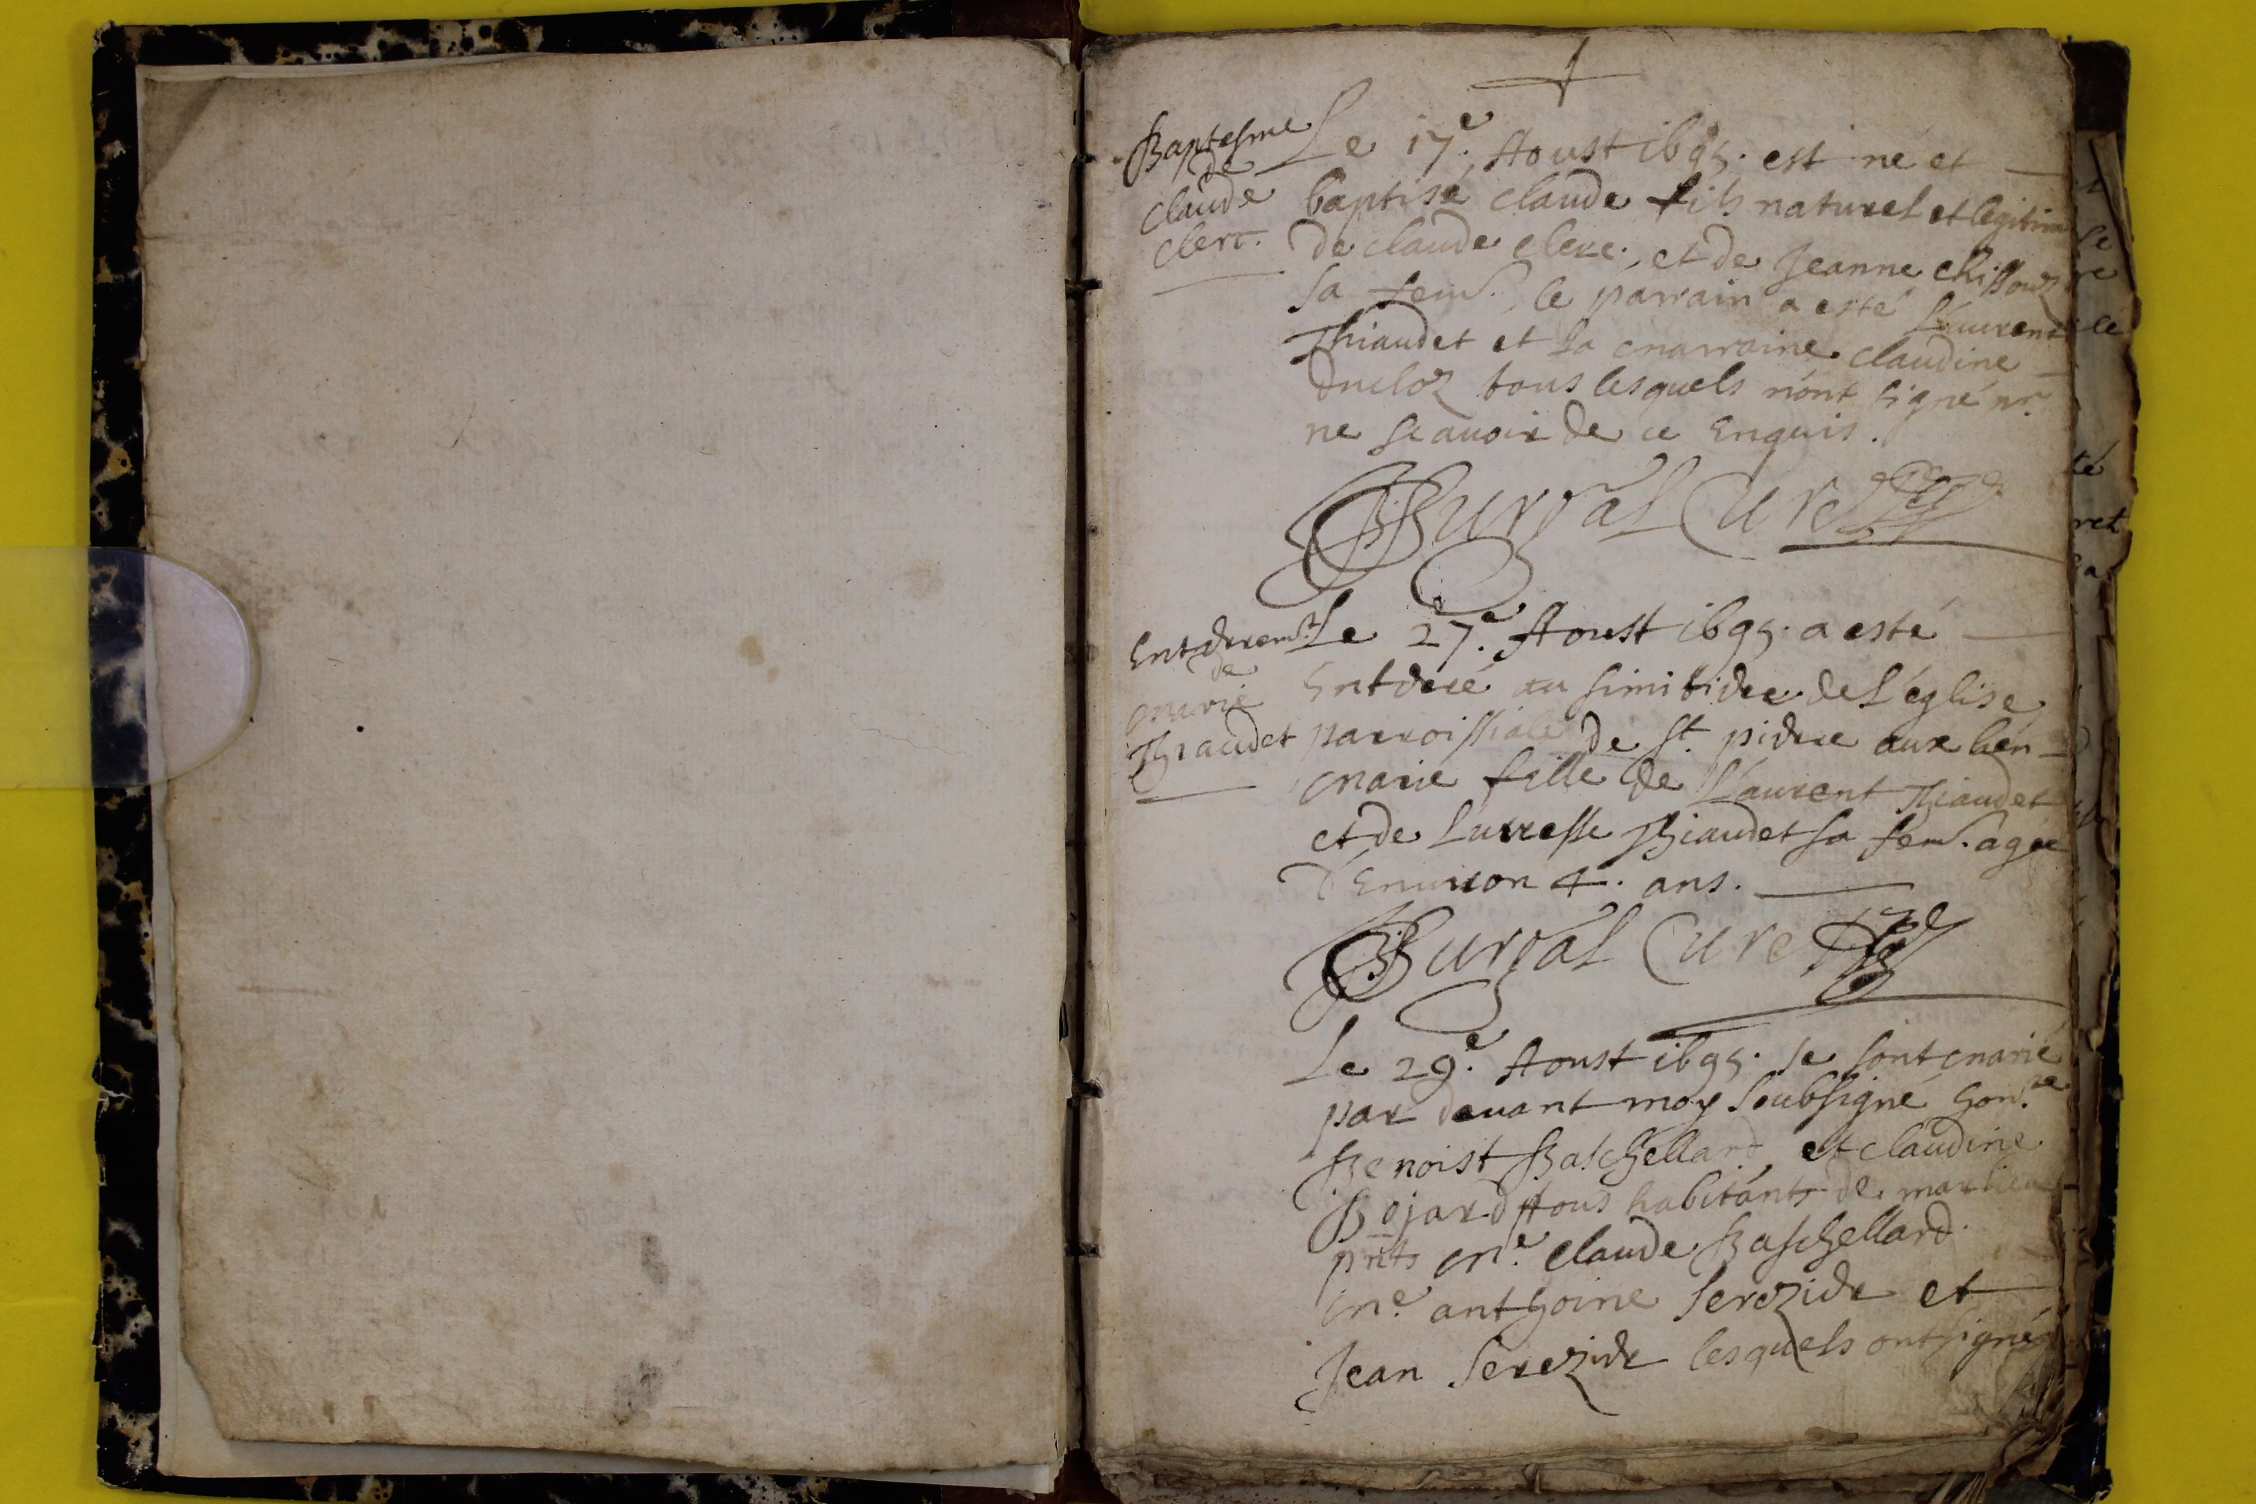 Baptesme
de
claude
clerc.
Le 17e. Aoust 1695. est né et
baptisé claude fils naturel et legitim
de claude clerc, et de Jeanne
sa fem. le parrain a esté Laurent
Thiaudet et la marraine claudine
ducloz tous lesquels n'ont signé pr.
ne scavoir de ce Enquis.
Burdal Curé
Entderremt.
de
marie
Thiaudet
Le 27e. Aoust 1695. a esté
Entderé au simitidre de L'église
parroissiale de St. pidrre aux lien
marie fille de Laurent Thiaudet
et de Lucresse Thiaudet sa fem. agée
d'Enuiron 4. ans.
Burdal Curé
Le 29e. Aoust 1695. se sont marié
par devant moy soubsigné hon.re
Benoist Baschellard et claudine
Bojard tous habitants de marlieu
pnts me. claude Baschellard
me. anthoine Serezidr et
Jean Serezidr lesquels ont signé